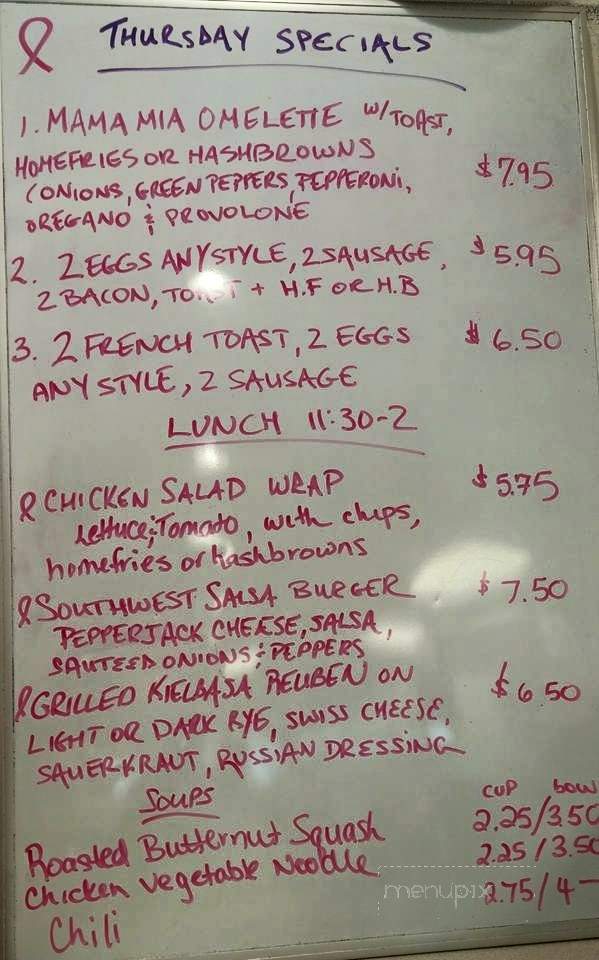 THURSDAY SPECIALS
1. MAMA MIA OMELETTE W/TOAST,
HOMEFRIES OR HASHBROWNS
(ONIONS, GREEN PEPPERS, PEPPERONI, $7.95
OREGANO & PROVOLONE
2. 2 EGGS ANY STYLE, 2 SAUSAGE, $5.95
2 BACON, TOAST + H.F OR H.B
3. 2 FRENCH TOAST, 2 EGGS $6.50
ANY STYLE, 2 SAUSAGE
LUNCH 11:30-2
CHICKEN SALAD WRAP $5.75
Lettuce & Tomato, with chips,
homefries or hashbrowns
SOUTHWEST SALSA BURGER $7.50
PEPPERJACK CHEESE, SALSA,
SAUTEED ONIONS & PEPPERS
GRILLED KIELBASA REUBEN ON $6.50
LIGHT OR DARK RYE, SWISS CHEESE,
SAUERKRAUT, RUSSIAN DRESSING
SOUPS CUP BOWL
Roasted Butternut Squash 2.25/3.50
Chicken Vegetable Noodle 2.25/3.50
Chili 2.75/4-
menupix